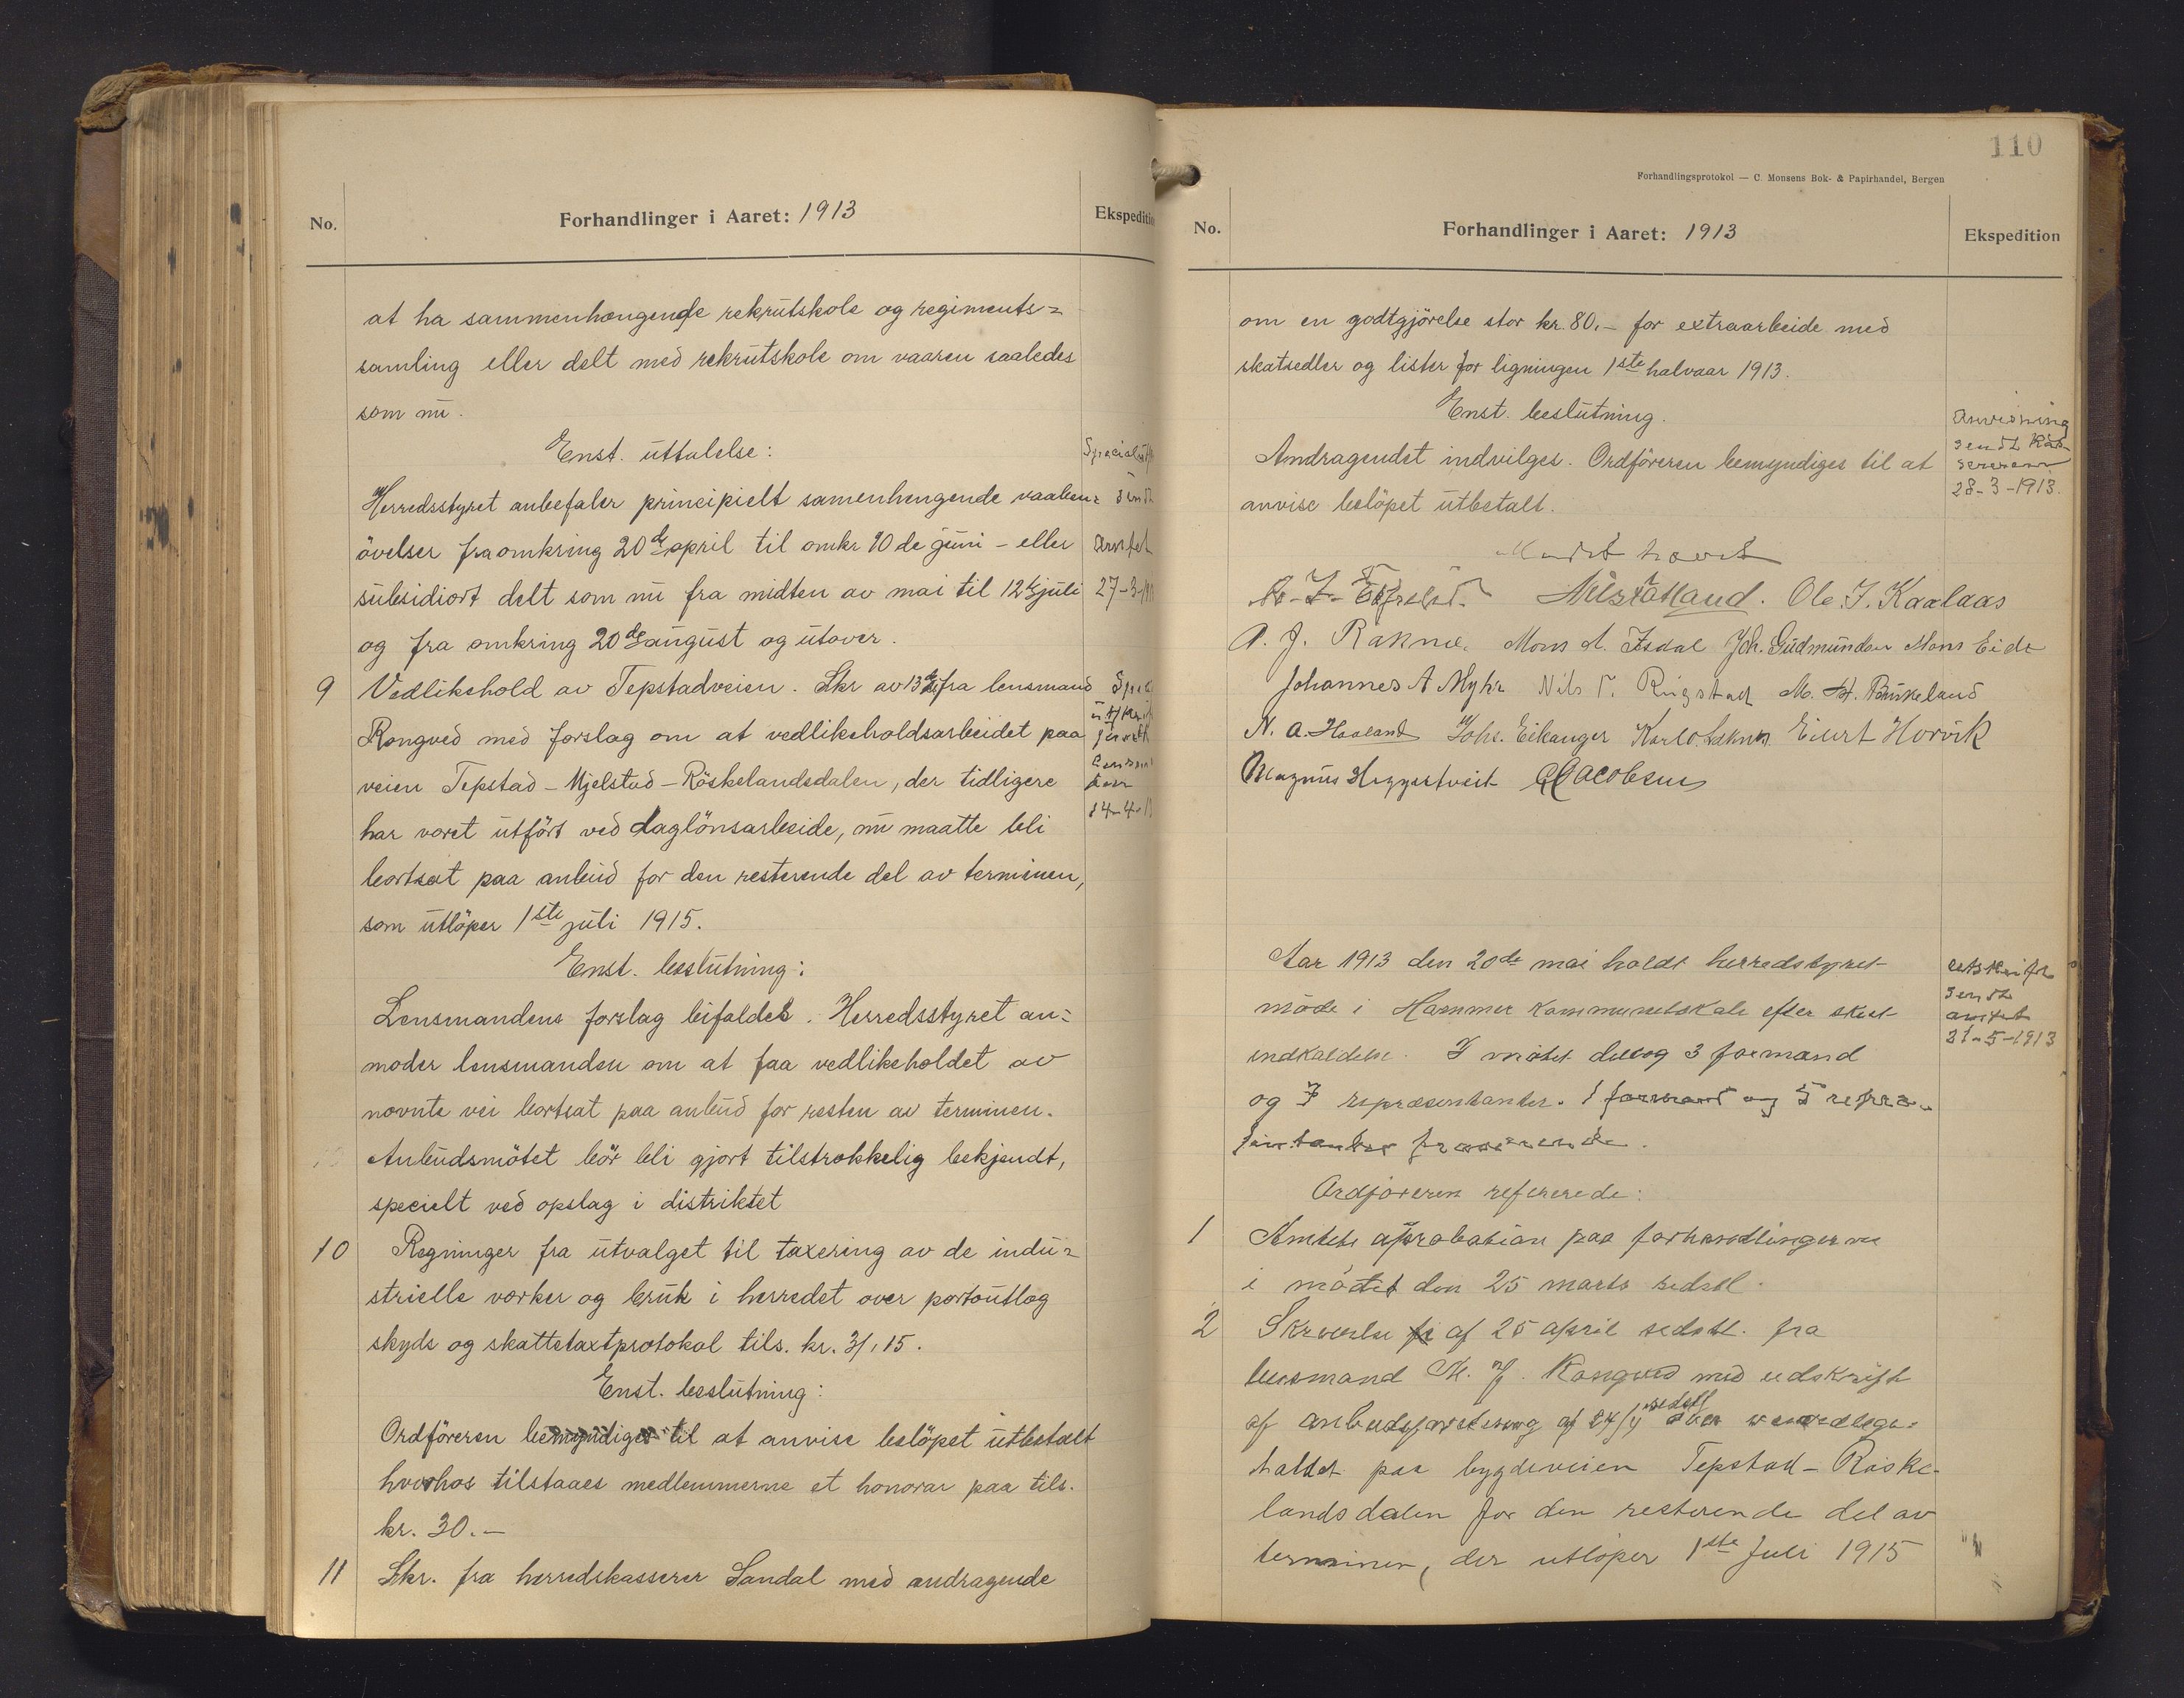 No.
Forhandlinger i Aaret: 1913
Ekspeditio
at ha sammenhængende rekrutskole og regiments=
samling eller delt med rekrutskole om vaaren saaledes
som nu.
Enst. uttalelse:
Herredsstyret anbefaler principielt samenhengende vaaben=
övelser fra omkring 20de april til omkr 10de juni – eller
subsidiært delt som nu fra midten av mai til 12te juli
og fra omkring 20de august og utover.
sendt
27-3-
9 Vedlikehold av Tepstadveien. Skr av 13de fra lensmand
Rongved med forslag om at vedlikeholdsarbeidet paa
veien Tepstad – Mjelstad – Röskelandsdalen, der tidligere
har været utfört ved daglönsarbeide, nu maatte bli
bortsat paa anbud for den resterende del av terminen,
som utlöper 1ste juli 1915.
14-4-
Enst. beslutning:
Lensmandens forslag bifaldes. Herredsstyret an=
moder lensmanden om at faa vedlikeholdet av
nævnte vei bortsat paa anbud for resten av terminen.
Anbudsmötet bör bli gjort tilstrækkelig bekjendt,
specielt ved opslag i distriktet
10 Regninger fra utvalget til taxering av de indu=
strielle værker og bruk i herredet over portoutlæg
skyds og skattetaxtprotokol tils. kr. 31,15.
Enst. beslutning:
Ordföreren bemyndiges til at anvise belöpet utbetalt
hvorhos tilstaaes medlemmerne et honorar paa tils.
kr. 30.–
11 Skr. fra herredskasserer Sandal med andragende
110
Forhandlingsprotokol — C. Monsens Bok- & Papirhandel, Bergen
No.
Forhandlinger i Aaret: 1913
Ekspedition
om en godtgjörelse stor kr. 80.– for extraarbeide med
skatsedler og lister for ligningen 1ste halvaar 1913.
Enst. beslutning.
Andragendet indvilges. Ordföreren bemyndiges til at
anvise belöpet utbetalt.
Anvisning
sendt Kas-
sereren
28-3-1913.
Mödet hævet
Nils Tatland. Ole. J. Kaalaas
A. J. Rakne. Mons A. Isdal Joh. Gudmundsen Mons Eide
Johannes A Myhr Nils T. Rugstad M. H. Birkeland
N. A. Haaland Johs. Eikanger Karl O. Eilert Horvik
Magnus Heggertveit Jacobsen
Aar 1913 den 20de mai holdt herredstyret
möde i Hammer kommunelokale efter skeet
indkaldelse. I mötet deltog 3 formænd
og 7 repræsentanter. 1 formand og 5 repræ=
sentanter fraværende.
Utskrift
sendt
amtet
21-5-1913
Ordföreren refererede:
1 Amtets approbation paa forhandlingerne
i mödet den 25 marts sidstl.
2 Skrivelse af 25 april sidstl. fra
lensmand M. J. Rongved med udskrift
af anbudsforretning af 24/4 sidstl over vedlige=
holdet paa bygdeveien Tepstad – Röske-
landsdalen for den resterende del av
terminen, der utlöper 1ste Juli 1915